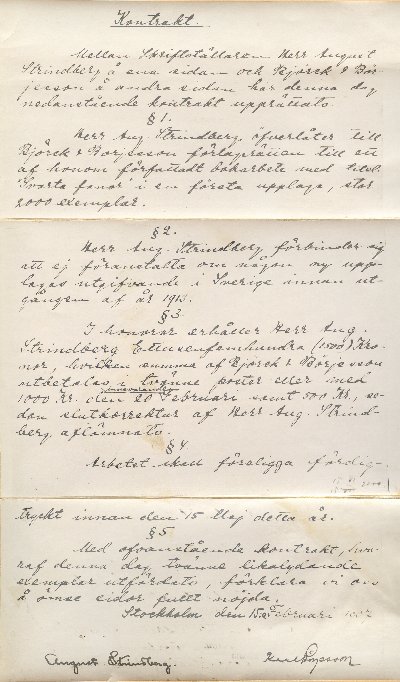 Kontrakt.
Mellan Skriftställaren Herr August
Strindberg å ena sidan och Björck & Bör-
jesson å andra sidan har denna dag
nedanstående kontrakt upprättats.
§ 1.
Herr Aug. Strindberg öfverlåter till
Björck & Börjesson förlagsrätten till ett
af honom författadt bokarbete med titel
"Svarta fanor" i en första upplaga, stor
2000 exemplar.
§ 2.
Herr Aug. Strindberg förbinder sig
att ej föranstalta om någon ny upp-
lagas utgifvande i Sverige innan ut-
gången af år 1913.
§ 3
I honorar erhåller Herr Aug.
Strindberg Ettusenfemhundra (1500) Kro-
nor, hvilken summa af Björck & Börjesson
utbetalas i tvänne poster eller med
1000 Kr. den 20 Februari samt 500 Kr., se-
dan slutkorrektur af Herr Aug. Strind-
berg aflämnats.
§ 4
Arbetet skall föreligga färdig-
tryckt innan den 15 Maj detta år.
§ 5
Med ofvanstående kontrakt, hva-
raf denna dag tvänne likalydande
exemplar utfärdats, förklara vi oss
å ömse sidor fullt nöjda.
Stockholm den 15 Februari 1907
August Strindberg. Karl Börjesson